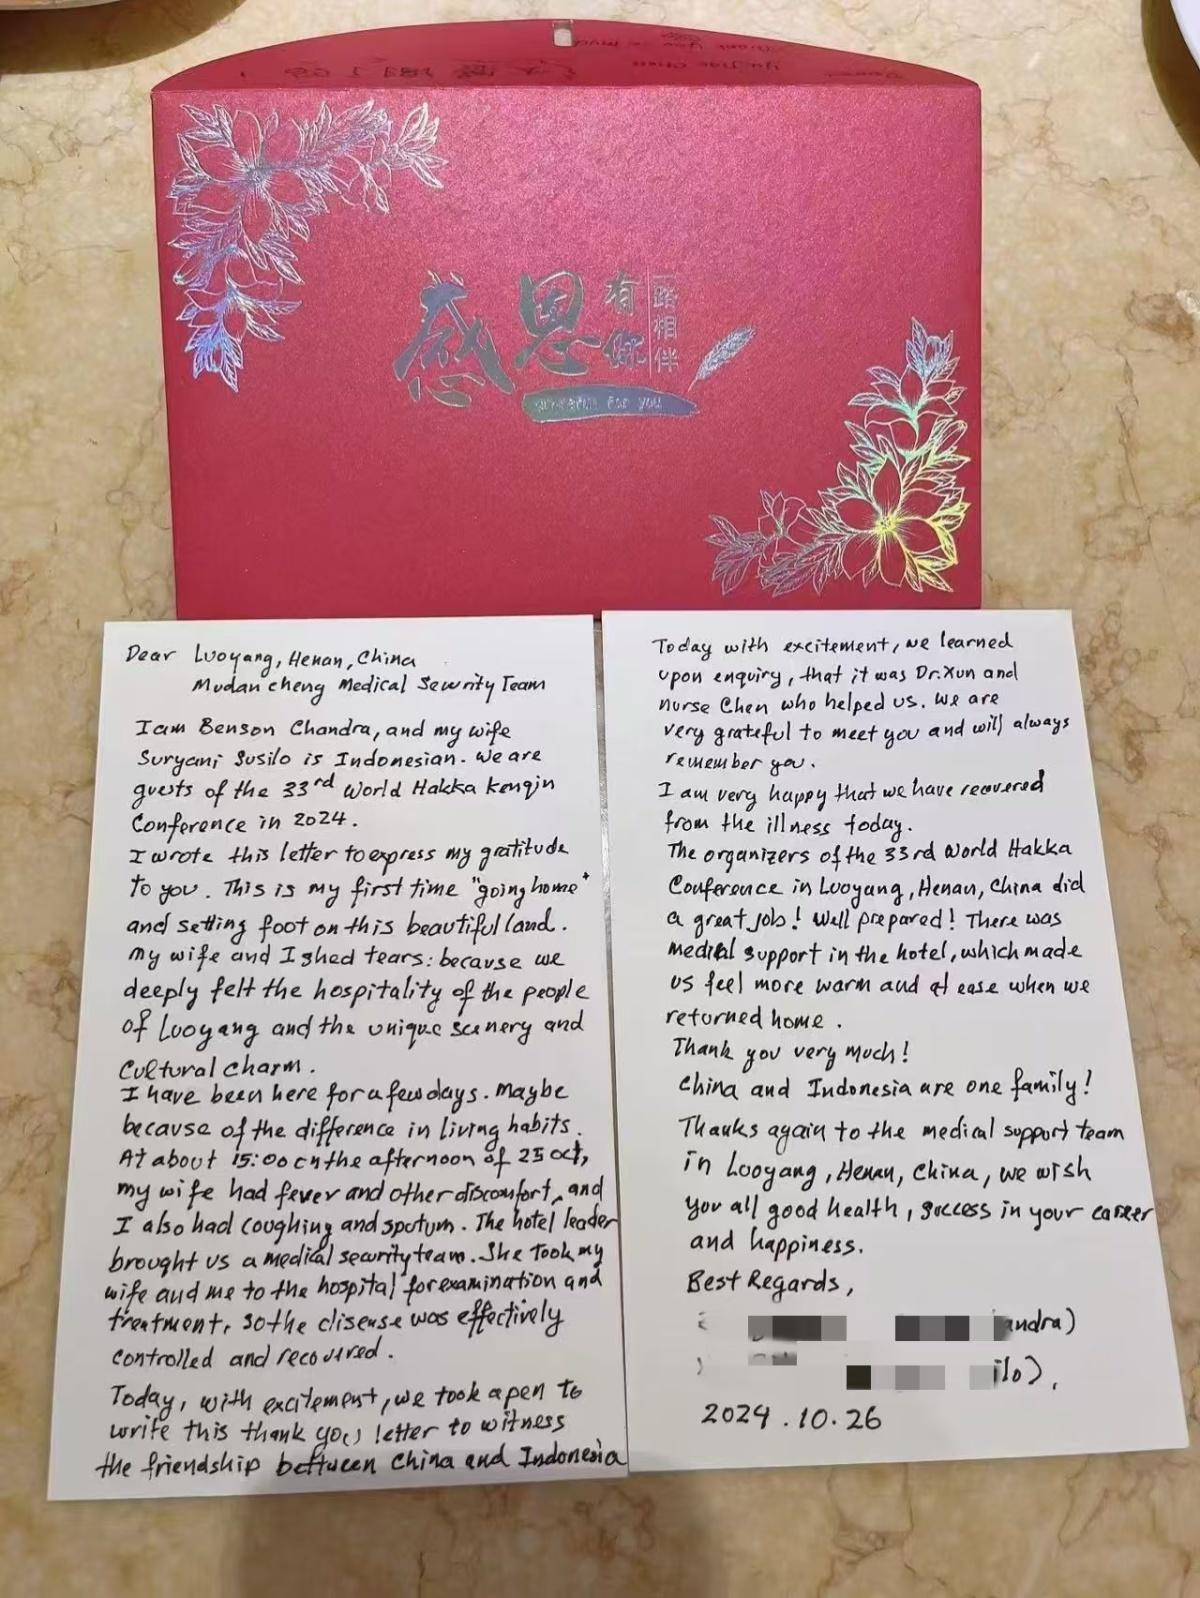 感恩有你
一路相伴
for you
Dear Luoyang, Henan, China
Mudan cheng Medical Security Team
I am Benson Chandra, and my wife
Suryani Susilo is Indonesian. We are
guests of the 33rd World Hakka kenqin
Conference in 2024.
I wrote this letter to express my gratitude
to you. This is my first time "going home"
and setting foot on this beautiful land.
my wife and I shed tears: because we
deeply felt the hospitality of the people
of Luoyang and the unique scenery and
cultural charm.
I have been here for a few days. Maybe
because of the difference in living habits.
At about 15:00 on the afternoon of 25 oct,
my wife had fever and other discomfort, and
I also had coughing and sputum. The hotel leader
brought us a medical security team. She took my
wife and me to the hospital for examination and
treatment, so the disease was effectively
controlled and recovered.
Today, with excitement, we took a pen to
write this thank you letter to witness
the friendship bettween China and Indonesia
Today with excitement, we learned
upon enquiry, that it was Dr. Xun and
nurse Chen who helped us. We are
very grateful to meet you and will always
remember you.
I am very happy that we have recovered
from the illness today.
The organizers of the 33rd World Hakka
Conference in Luoyang, Henan, China did
a great job! Well prepared! There was
medical support in the hotel, which made
us feel more warm and at ease when we
returned home.
Thank you very much!
China and Indonesia are one family!
Thanks again to the medical support team
in Luoyang, Henan, China, we wish
you all good health, success in your career
and happiness.
Best Regards,
andra)
ilo),
2024.10.26